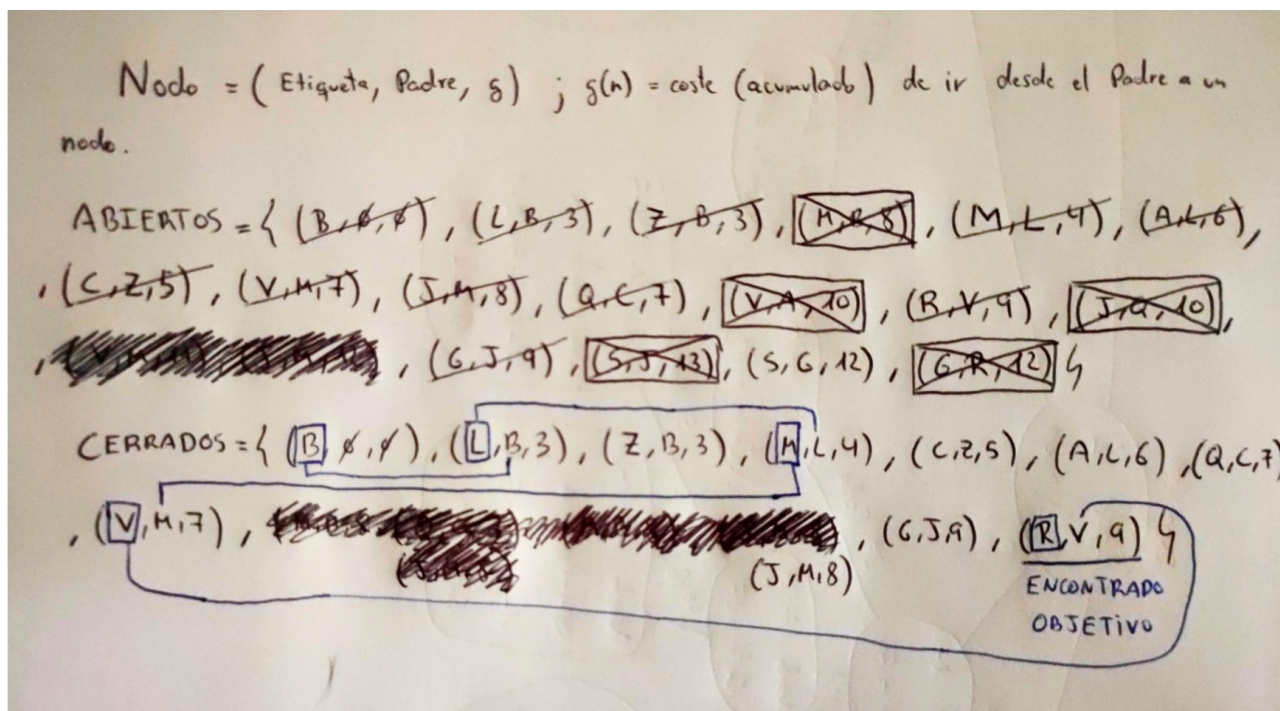 Nodo = ( Etiqueta, Padre, g ) ; g(n) = coste (acumulado) de ir desde el Padre a un
nodo.
ABIERTOS = { (B,∅,∅), (L,B,3), (Z,B,3), (M,B,8), (M,L,4), (A,L,6),
, (C,Z,5), (V,M,7), (J,M,8), (Q,C,7), (V,A,10), (R,V,9), (J,Q,10),
, (G,J,9), (S,J,13), (S,G,12), (G,R,12) }
CERRADOS = { (B,∅,∅), (L,B,3), (Z,B,3), (M,L,4), (C,Z,5), (A,L,6), (Q,C,7)
, (V,M,7), (J,M,8), (G,J,9), (R,V,9) }
ENCONTRADO
OBJETIVO